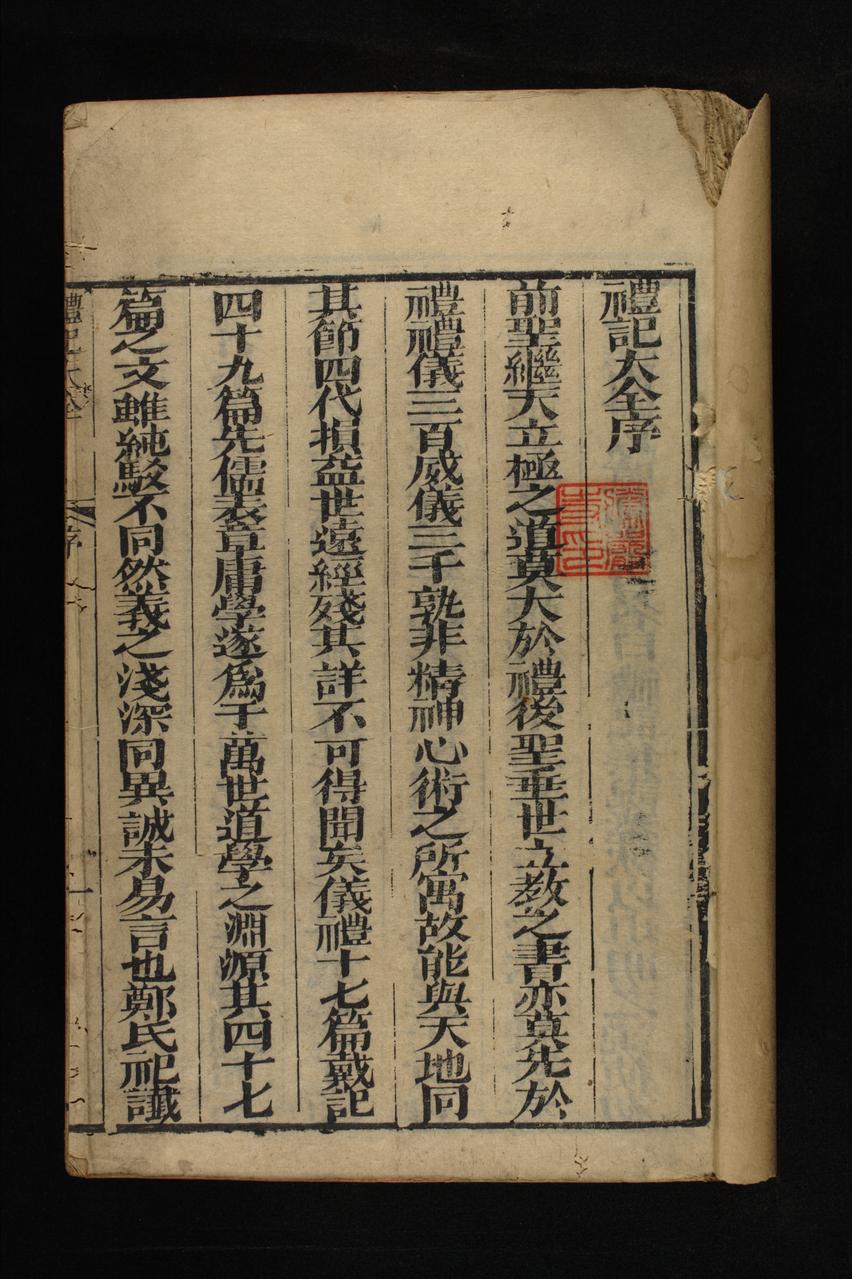 禮記大全序
前聖繼天立極之道莫大於禮後聖垂世立教之書亦莫先於
禮禮儀三百威儀三千孰非精神心術之所寓故能與天地同
其節四代損益世遠經殘其詳不可得聞矣儀禮十七篇戴記
四十九篇先儒表章庸學遂爲千萬世道學之淵源其四十七
篇之文雖純駁不同然義之淺深同異誠未易言也鄭氏祀讖
禮記大全
序
一